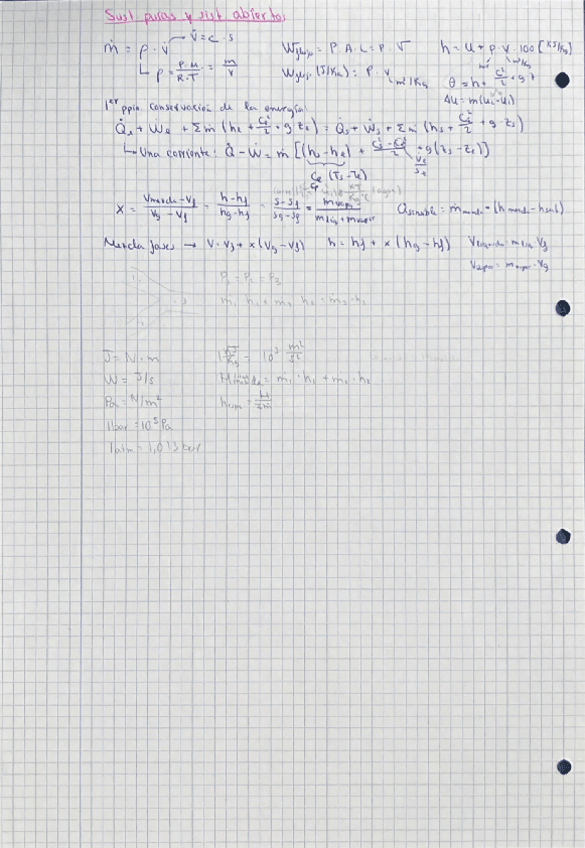 Sust puras y sist abiertos
ṁ = ρ · V̇ → V̇ = c · s
ρ = P·M / R·T = m / V
W flujo = P · A · L = P · V
W flujo (J/kg) = P · v m³/kg
h = u + p · v · 100 [KJ/kg]
θ = h + c²/2 + g z
ΔU = m(u₂ - u₁)
1er ppio conservación de la energía:
Q̇e + Ẇe + Σṁ (he + ce²/2 + g ze) = Q̇s + Ẇs + Σṁ (hs + cs²/2 + g · zs)
Una corriente: Q̇ - Ẇ = ṁ [(hs - he) + cs² - ce² / 2 + g(zs - ze)]
cp (Ts - Te)
x = v mezcla - vf / vg - vf = h - hf / hg - hf = s - sf / sg - sf = m vapor / m liq + m vapor
Mezcla fases → v = vf + x (vg - vf)   h = hf + x (hg - hf)
V líquido = m liq · vf
V vapor = m vapor · vg
P₁ = P₂ = P₃
ṁ₁ h₁ + ṁ₂ h₂ = ṁ₃ · h₃
J = N · m
W = J/s
Pa = N/m²
1 bar = 10⁵ Pa
1 atm = 1,013 bar
1 KJ/Kg = 10³ m²/s²